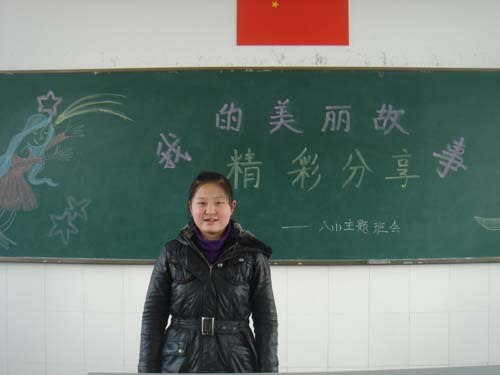 我的美丽故事
精彩分享
——八(1)主题班会